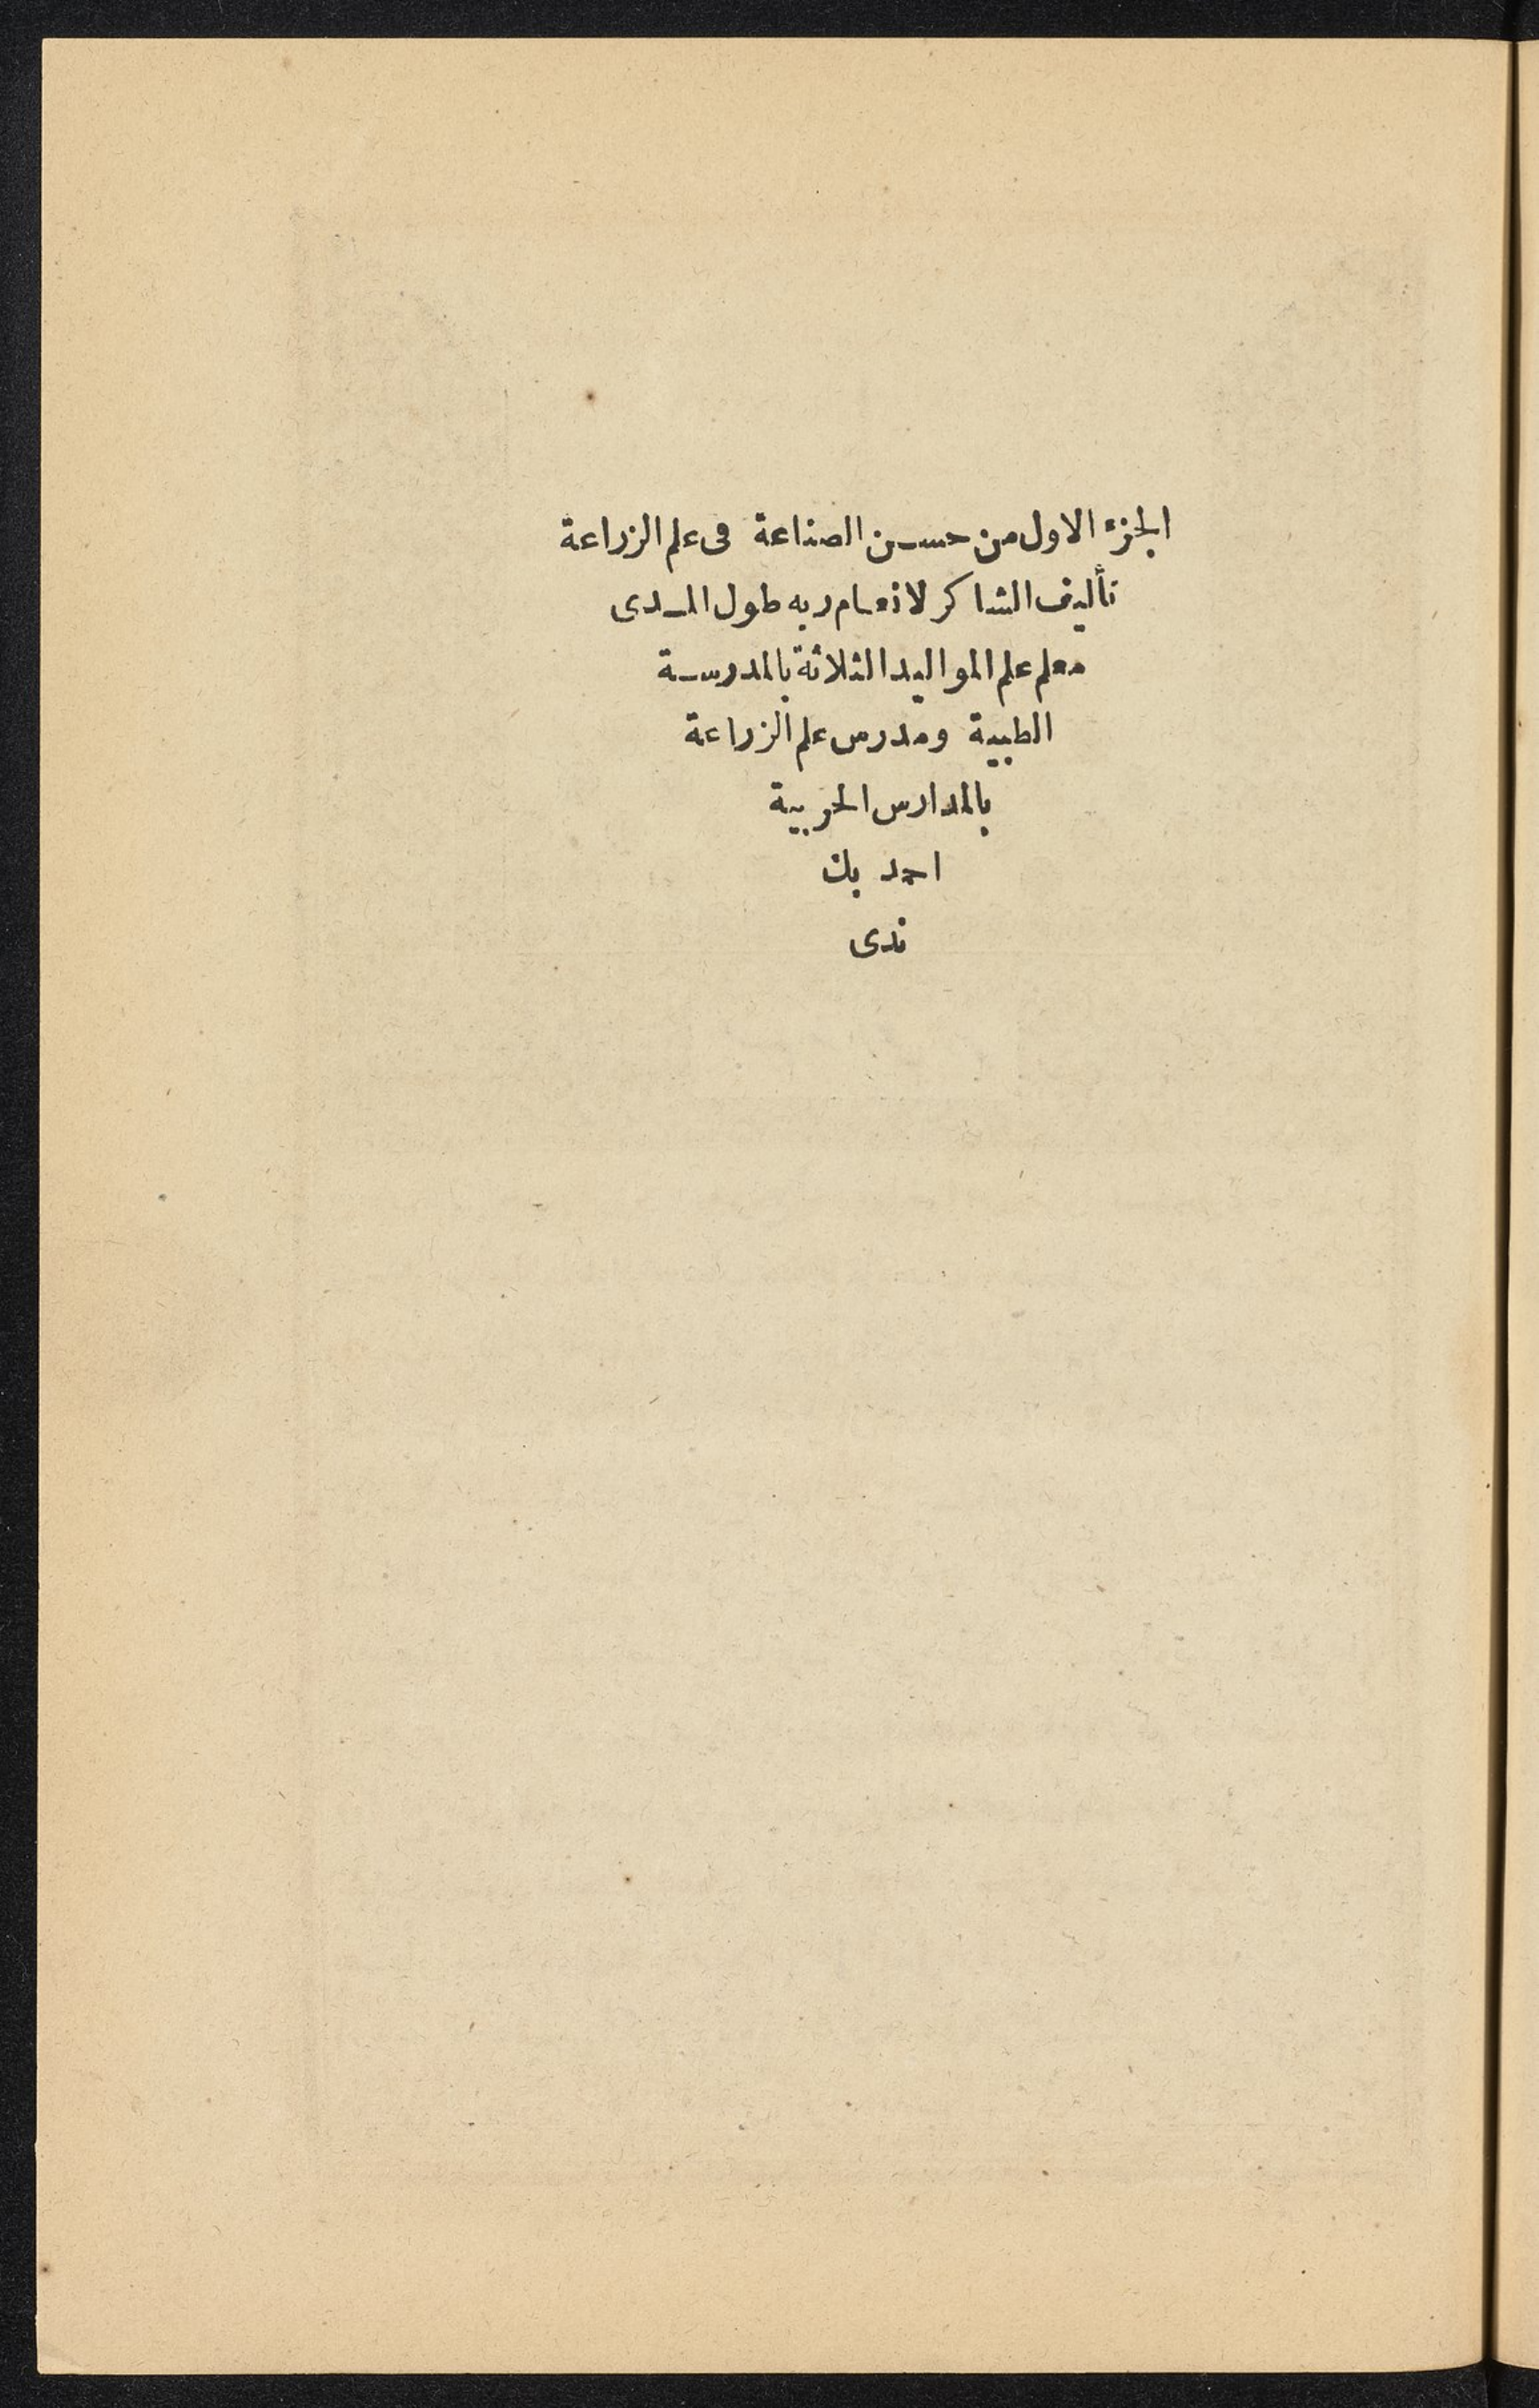 الجزء الاول من حسن الصناعة فى علم الزراعة
تأليف الشاكر لانعام ربه طول المدى
معلم علم المواليد الثلاثة بالمدرسة
الطبية ومدرس علم الزراعة
بالمدارس الحربية
احمد بك
ندى